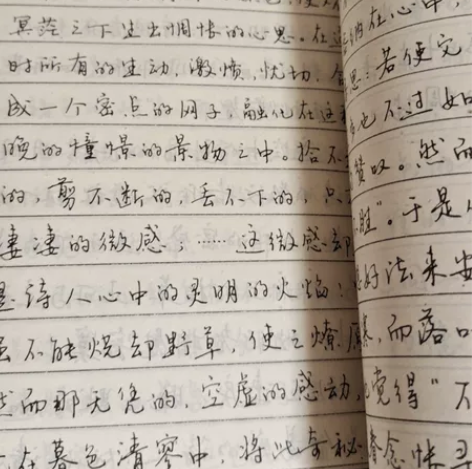 冥茫之下生出惆怅的心思。在这
时所有的生动，激愤，忧切，
成一个密点的网子，融化在这
晚的憧憬的景物之中。拾不
的，剪不断的，丢不下的，只
凄凄的微感；……这微感却
是诗人心中的灵明的火焰！
虽不能烧却野草，使之燎原
然而那无凭的，空虚的感动，
在暮色清寥中，将此奇秘
在心中，
思：若使完
也不过如
赞叹。然而
胜"。于是
好法来安
，而落
觉得"不